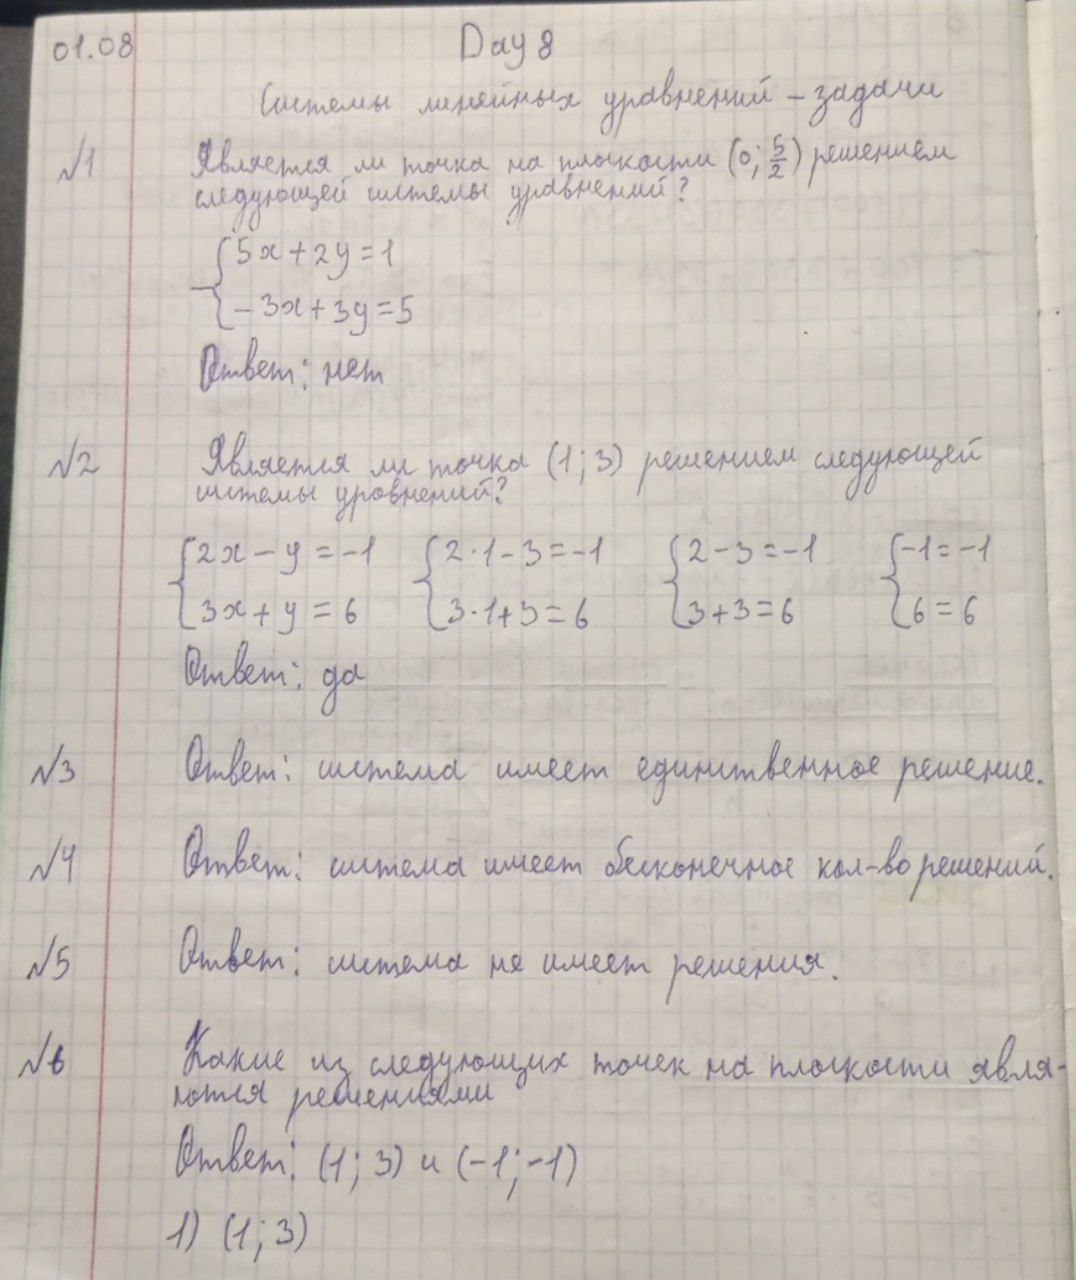 01.08 Day 8
Системы линейных уравнений – задачи
№1 Является ли точка на плоскости (0; 5/2) решением
следующей системы уравнений?
{5x + 2y = 1
{-3x + 3y = 5
Ответ: нет
№2 Является ли точка (1; 3) решением следующей
системы уравнений?
{2x - y = -1 {2·1 - 3 = -1 {2 - 3 = -1 {-1 = -1
{3x + y = 6 {3·1 + 3 = 6 {3 + 3 = 6 {6 = 6
Ответ: да
№3 Ответ: система имеет единственное решение.
№4 Ответ: система имеет бесконечное кол-во решений.
№5 Ответ: система не имеет решения.
№6 Какие из следующих точек на плоскости явля-
ются решениями
Ответ: (1; 3) и (-1; -1)
1) (1; 3)